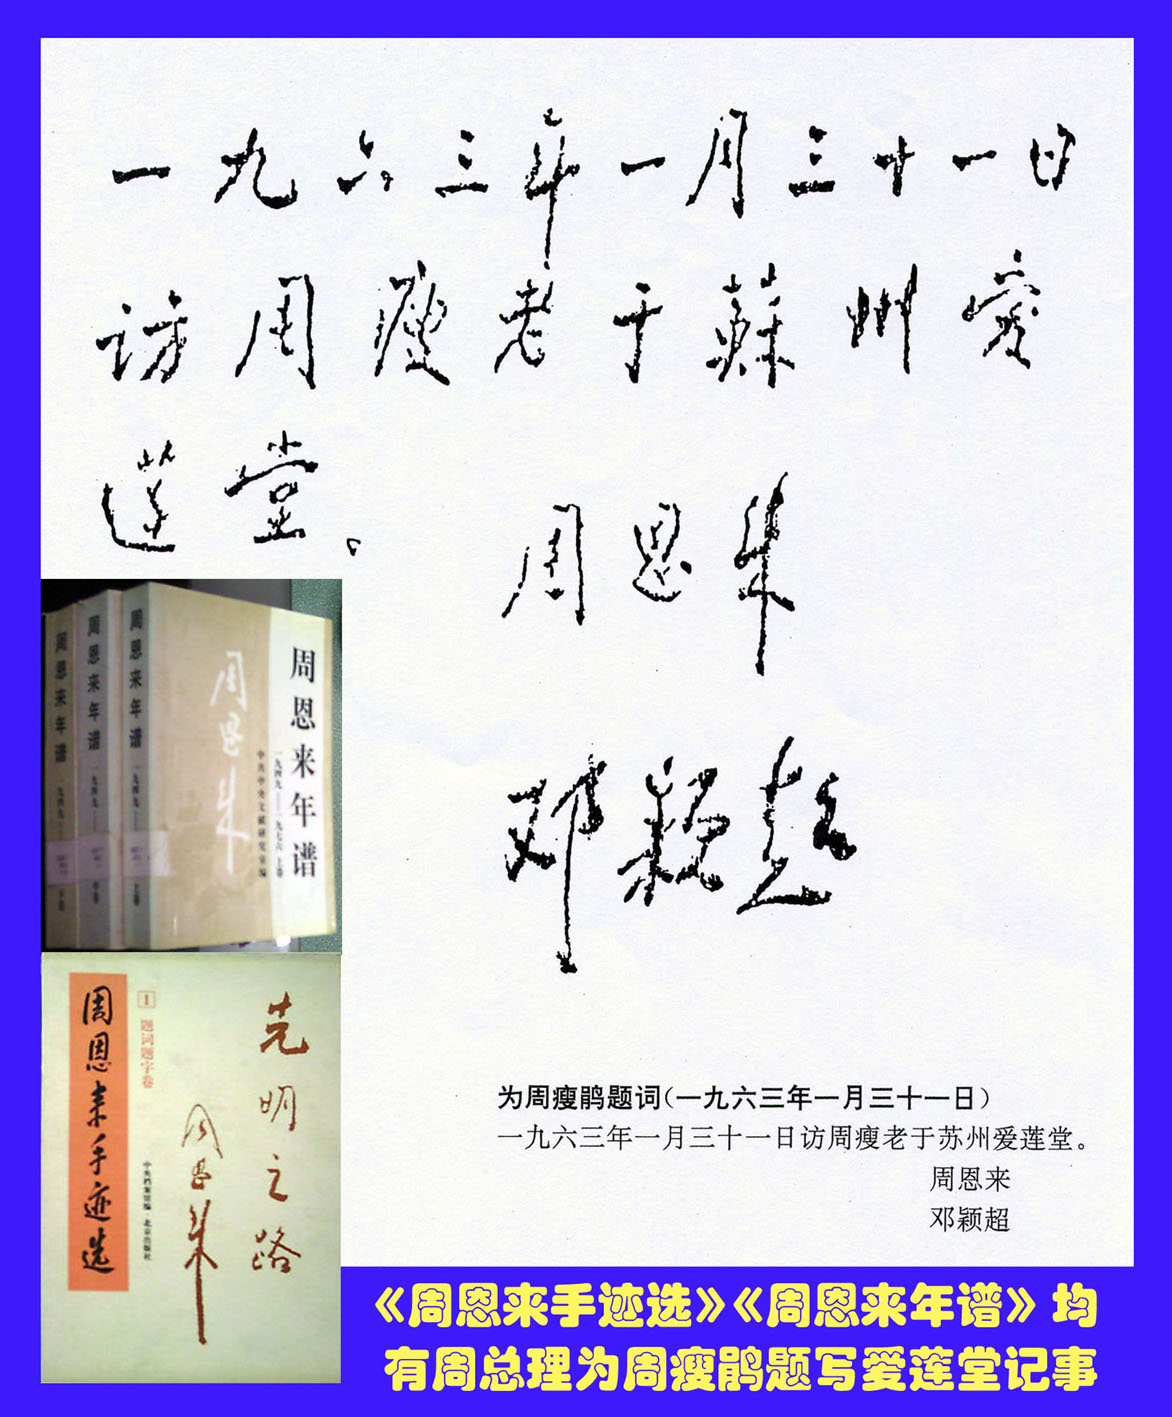 一九六三年一月三十一日
访周瘦老于蘇州爱
莲堂。
周恩来
邓颖超
周恩来年谱
一九四九——一九七六 上卷
中共中央文献研究室编
周恩来
周恩来年谱 一九四九—— 上卷
周恩来年谱 一九四九——
周恩来年谱 一九四九——
周恩来手迹选
1 题词题字卷
中央档案馆编·北京出版社
光明之路
周恩来
为周瘦鹃题词(一九六三年一月三十一日)
一九六三年一月三十一日访周瘦老于苏州爱莲堂。
周恩来
邓颖超
《周恩来手迹选》《周恩来年谱》均
有周总理为周瘦鹃题写爱莲堂记事